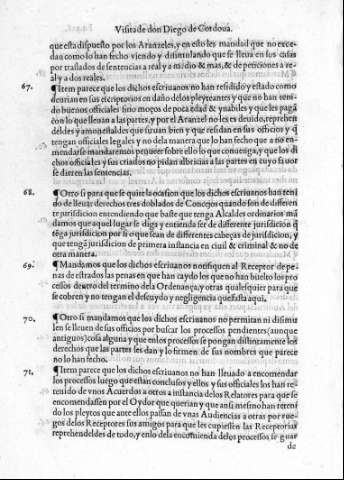 Visita de don Diego de Cordoua.
que esta dispuesto por los Aranzeles, y en esto les mandad que no exce-
dan como lo han fecho viendo y disimulando que se lleua en sus casas
por traslados de sentencias a real y a medio & mas, & de peticiones a re-
al y a dos reales.
67. ¶Item parece que los dichos escriuanos no han residido y estado como
deurian en sus escriptorios en daño delos pleyteantes y que no han teni-
do buenos officiales sino moços de poca edad & ynabiles y que les pagã
con lo que lleuan a las partes, y por el Aranzel no les es deuido, reprehen
deldes y amonestaldes que siruan bien y que residan en sus officios y q̃
tengan officiales legales y no dela manera que lo han fecho que a no en-
mendarse mandaremos proueer sobre ello lo que conuenga, y que los di
chos officiales y sus criados no pidan albricias a las partes en cuyo fauor
se dieren las sentencias.
68. ¶Otro si para que se quite la ocasion que los dichos escriuanos han teni
do de lleuar derechos tres doblados de Concejos quando son de differen
te jurisdicion entendiendo que baste que tenga Alcaldes ordinarios mã
damos que aquel lugar se diga y entienda ser de differente jurisdicion q̃
tẽga jurisdicion por si e que sean de differentes cabeças de jurisdicion, y
que tengã jurisdicion de primera instancia en ciuil & criminal & no de
otra manera.
69. ¶Mandamos que los dichos escriuanos notifiquen al Receptor de pe-
nas de estrados las penas en que han caydo los que no han buelto los pro
cessos dentro del termino dela Ordenança, y otras qualesquier para que
se cobren y no tengan el descuydo y negligencia que fasta aqui.
70. ¶Otro si mandamos que los dichos escriuanos no permitan ni disimu
len se lleuen de sus officios por buscar los processos pendientes (aunque
antiguos) cosa alguna y que enlos processos se pongan distintamente los
derechos que las partes les dan y lo firmen de sus nombres que parece
no lo han fecho.
71. ¶Item parece que los dichos escriuanos no han lleuado a encomendar
los processos luego que estan conclusos y ellos y sus officiales los han re-
tenido de vnos Acuerdos a otros a instancia delos Relatores para que se
encomendassen por el Oydor que querian y que ansi mesmo han reteni
do los pleytos que ante ellos passan de vnas Audiencias a otras por rue-
gos delos Receptores sus amigos para que les cupiessen las Receptorias
reprehendeldes de todo, y enlo dela encomienda delos processos se guar
de